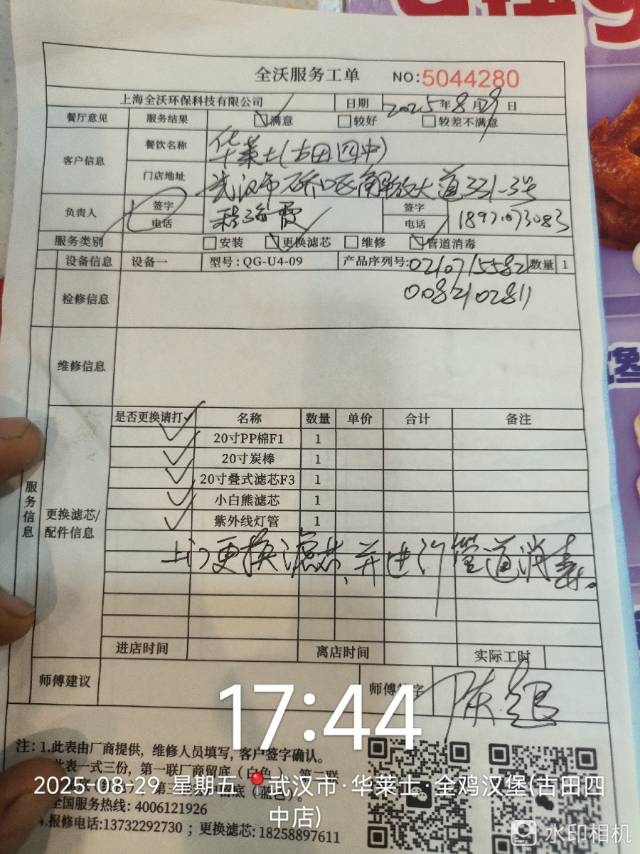 全沃服务工单 NO:5044280
上海全沃环保科技有限公司 日期 2025年8月29日
餐厅意见 服务结果 ☑满意 □较好 □较差不满意
客户信息 餐饮名称 华莱士(古田四中)
门店地址 武汉市硚口区解放大道331-3号
负责人 签字 签字
电话 电话 18971073083
服务类别 □安装 ☑更换滤芯 □维修 ☑管道消毒
设备信息 设备一 型号:QG-U4-09 产品序列号:0210715582 数量 1
0082102811
检修信息
维修信息
服务信息
更换滤芯/配件信息
是否更换请打✓ 名称 数量 单价 合计 备注
✓ 20寸PP棉F1 1
✓ 20寸炭棒 1
✓ 20寸叠式滤芯F3 1
✓ 小白熊滤芯 1
✓ 紫外线灯管 1
上门更换滤芯、并进行管道消毒。
进店时间 离店时间 实际工时
师傅建议 师傅签字
17:44
注:1.此表由厂商提供,维修人员填写,客户签字确认。
2025-08-29 星期五 武汉市·华莱士·全鸡汉堡(古田四
中店)
全国服务热线:4006121926
4.报修电话:13732292730 ; 更换滤芯:18258897611
水印相机